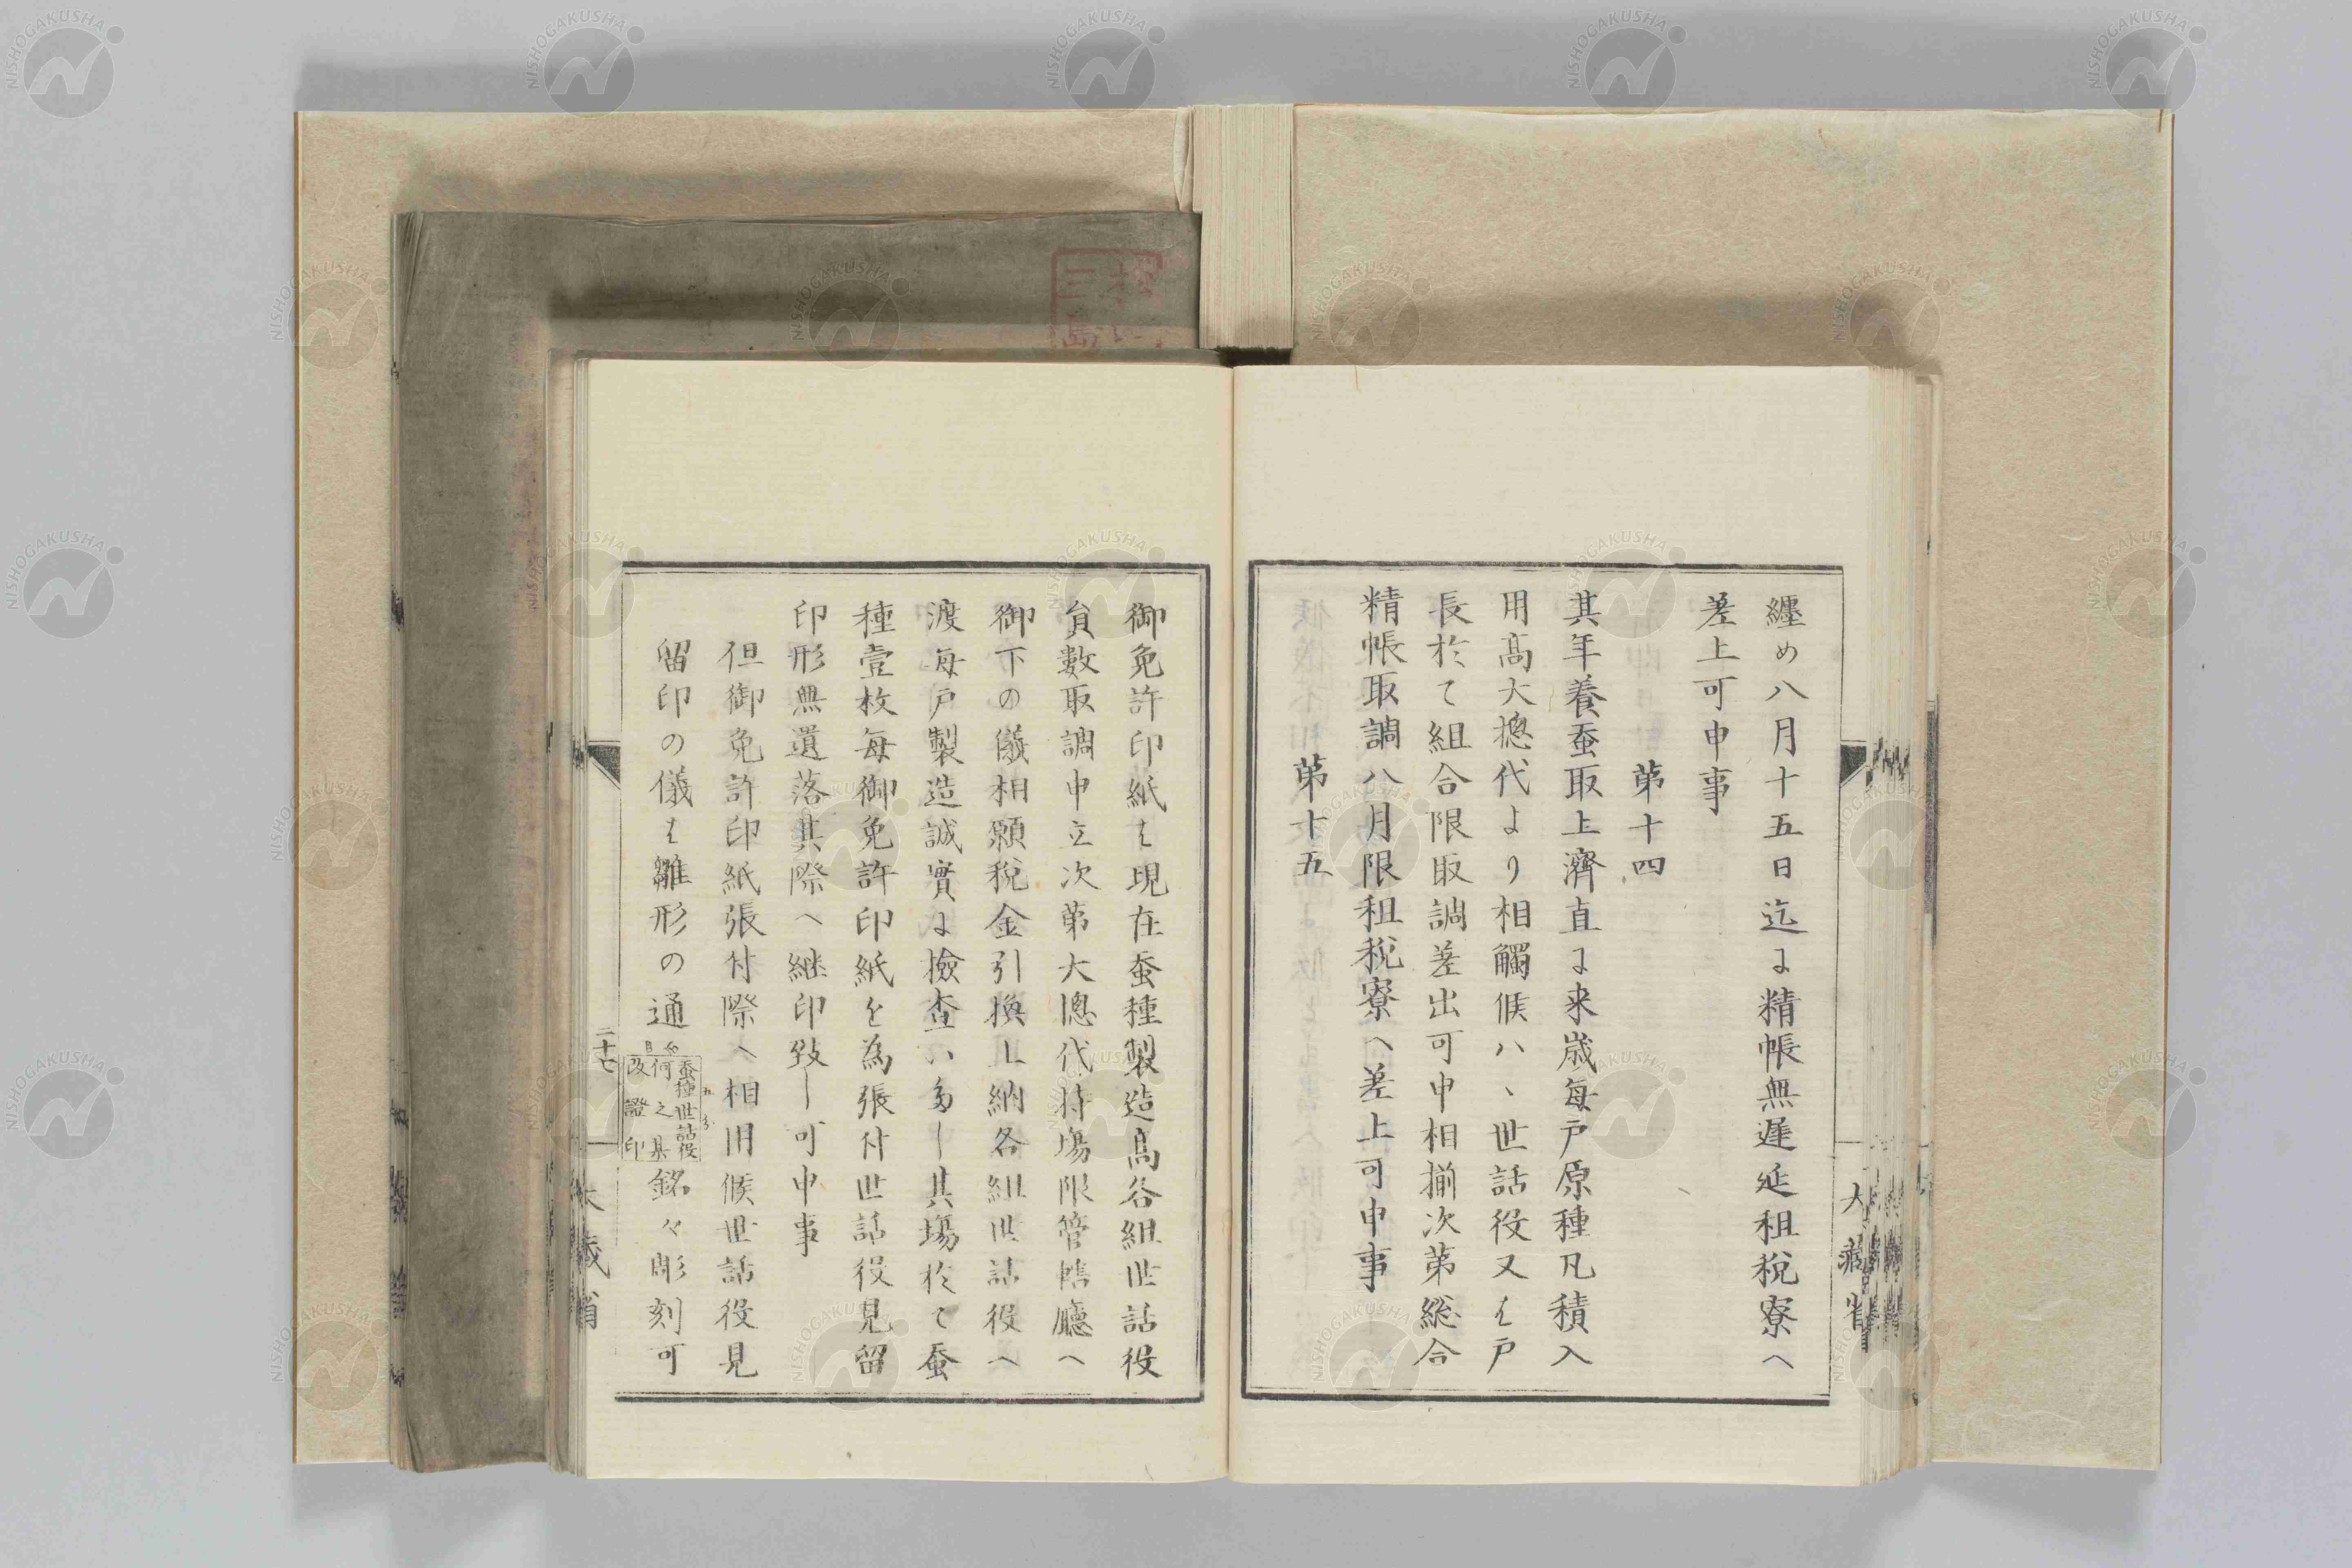 纒め八月十五日迄に精帳無遅延租税寮へ
差上可申事
第十四
其年養蚕取上濟直に来歳毎戸原種凡積入
用髙大揔代より相觸候ハヽ世話役又は戸
長於て組合限取調差出可申相揃次第総合
精帳取調八月限租税寮へ差上可申事
第十五
大藏省
御免許印紙は現在蚕種製造髙各組世話役
貟數取調申立次第大惣代持塲限管轄廳へ
御下の儀相願税金引換上納各組世話役へ
渡毎戸製造誠實に撿査いたし其塲於て蚕
種壹枚毎御免許印紙を為張付世話役見留
印形無遺落其際へ継印致し可申事
但御免許印紙張付際へ相用候世話役見
留印の儀は雛形の通
蚕種世話役
何之某
改證印
銘々彫刻可
二十七
大藏省
NISHOGAKUSHA